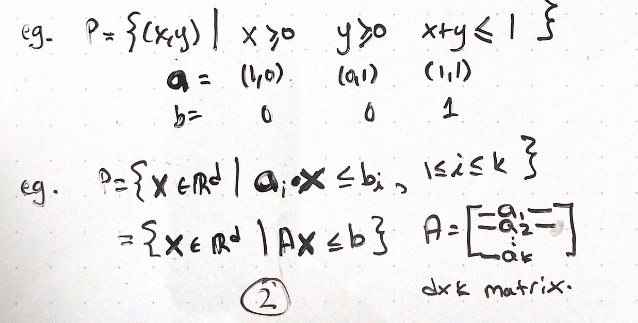 eg. P = {(x,y) | x ≥ 0 y ≥ 0 x+y ≤ 1 }
a = (1,0). (0,1) (1,1)
b = 0 0 1
eg. P = {x ∈ ℝᵈ | aᵢ•x ≤ bᵢ, 1≤i≤k }
= {x ∈ ℝᵈ | Ax ≤ b} A = [—a₁— —a₂— ⋮ —aₖ]
d×k matrix.
2